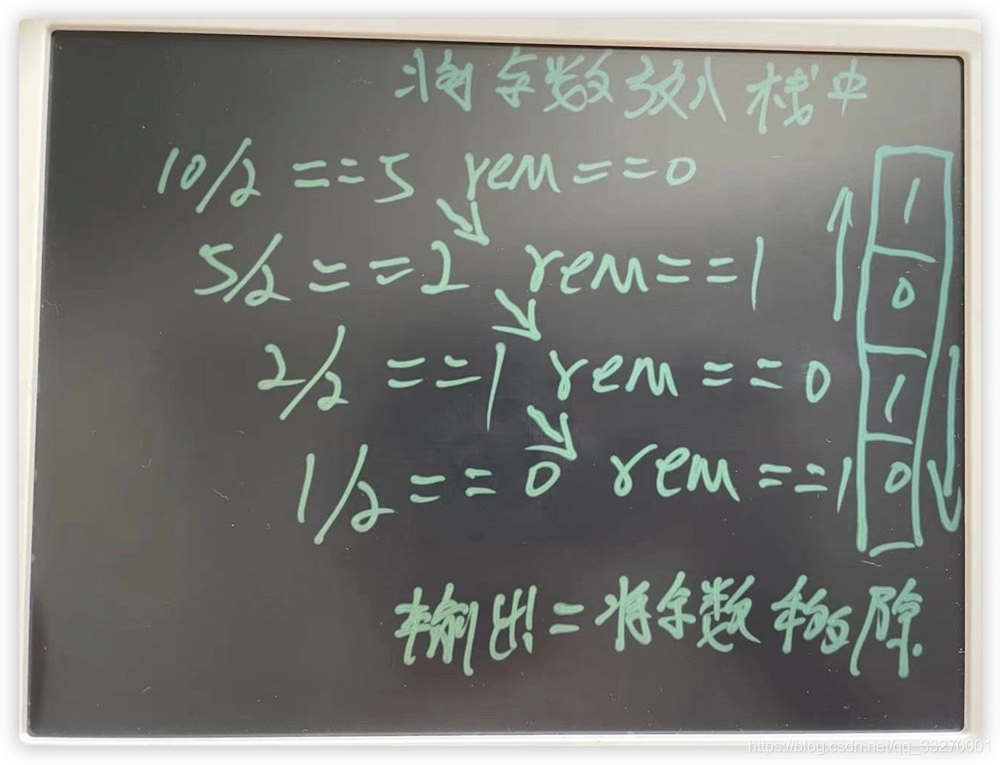 将余数放入栈中
10/2 ==5 rem==0
5/2 ==2 rem==1
2/2 ==1 rem==0
1/2 ==0 rem==1
1
0
1
0
输出=将余数移除
https://blog.csdn.net/qq_33270001